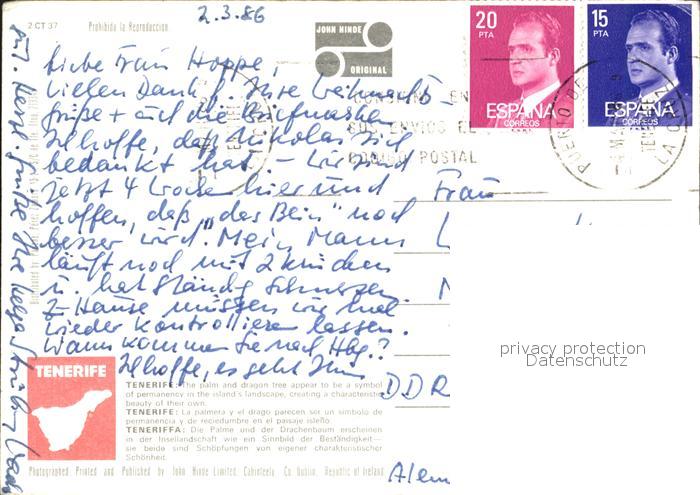 2 CT 37
Prohibida la Reproduccion
2.3.86
JOHN HINDE
ORIGINAL
20
PTA
ESPAÑA
CORREOS
15
PTA
ESPAÑA
CORREOS
CONSIGNE EN
SUS ENVIOS EL
CODIGO POSTAL
PUERTO DE LA CRUZ
Liebe Frau Hoppe,
Vielen Dank f. Ihre Weihnachts-
grüße + auf die Briefmarken.
Ich hoffe, daß Nikolas sich
bedankt hat. – Wir sind
jetzt 4 Wochen hier und
hoffen, daß "das Bein" noch
besser wird. Mein Mann
läuft noch mit 2 Krücken
u. hat ständig Schmerzen.
Z-Hause müssen wir mal
wieder kontrollieren lassen.
Wann kommen Sie nach Hbg.?
Ich hoffe, es geht Ihnen
gut. Herzl. Grüße Ihre Helga
Frau
DDR
Alem
privacy protection
Datenschutz
TENERIFE
TENERIFE: The palm and dragon tree appear to be a symbol
of permanency in the island's landscape, creating a characteristic
beauty of their own.
TENERIFE: La palmera y el drago parecen ser un simbolo de
permanencia y de reciedumbre en el paisaje isleño.
TENERIFFA: Die Palme und der Drachenbaum erscheinen
in der Insellandschaft wie ein Sinnbild der Beständigkeit—
sie beide sind Schöpfungen von eigener charakteristischer
Schönheit.
Photographed Printed and Published by John Hinde Limited, Cabinteely, Co Dublin, Republic of Ireland